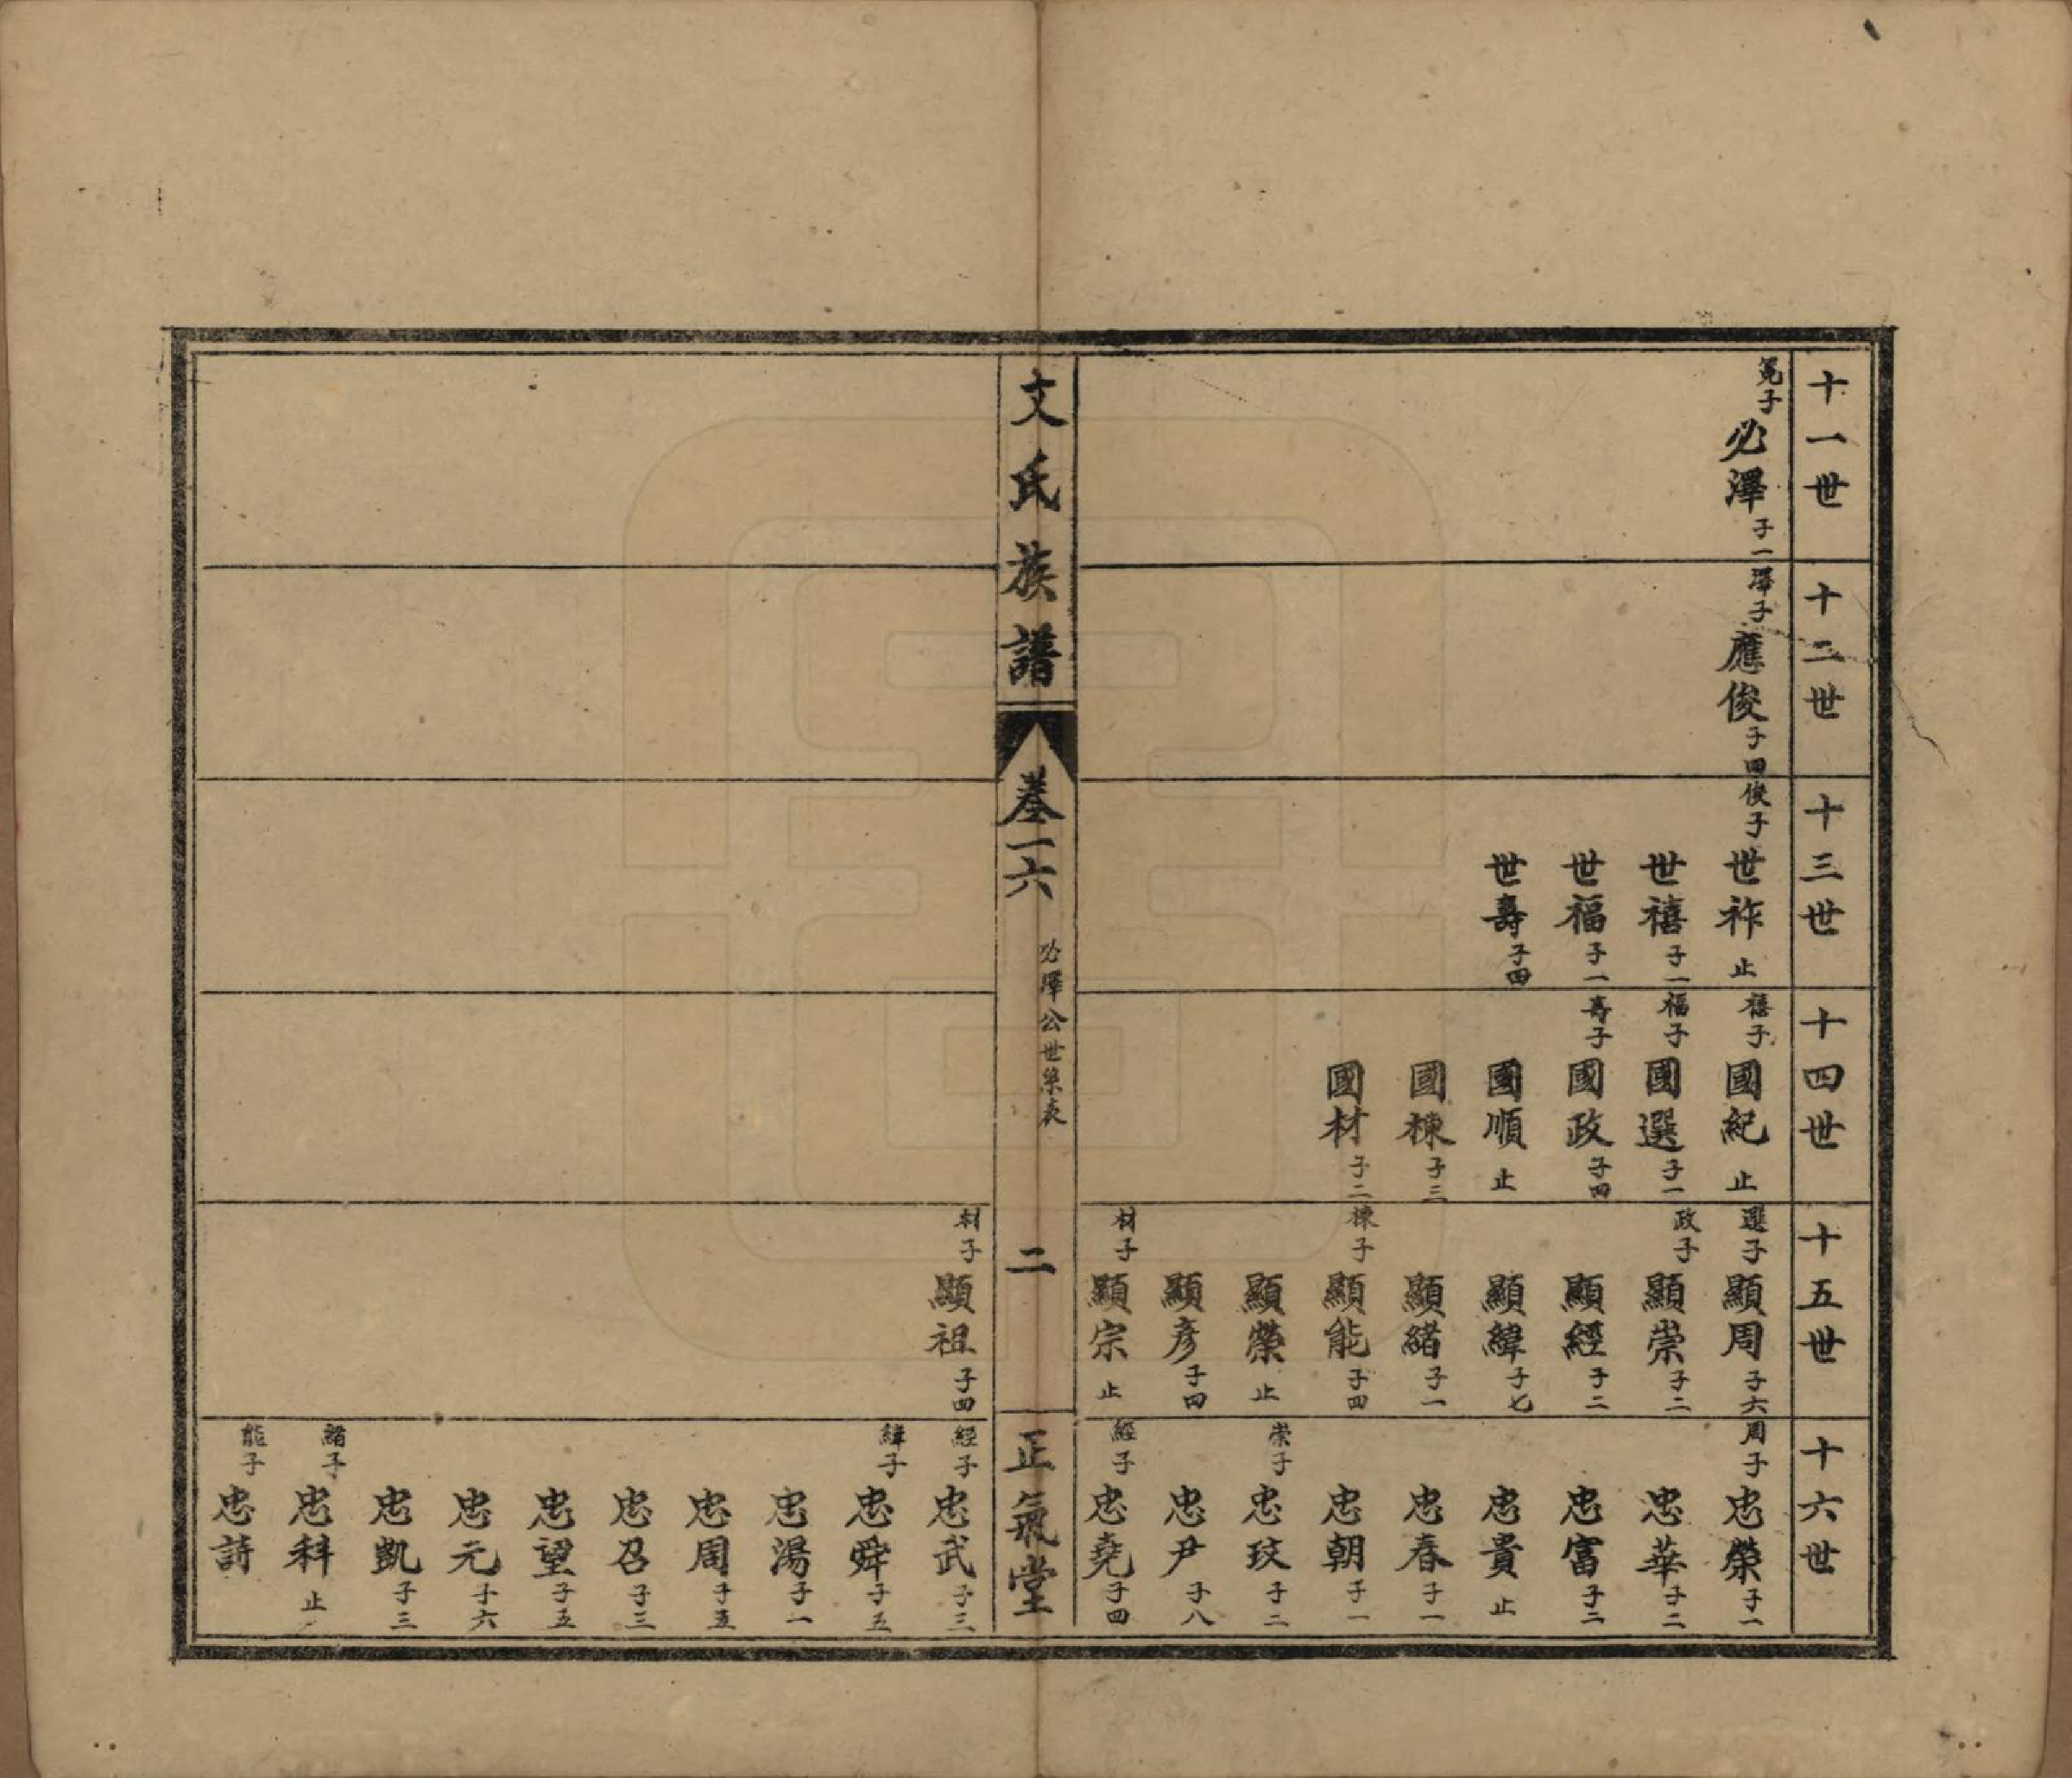 十一世
冕子 必澤 子一
十二世
澤子 應俊 子四
十三世
俊子 世祚 止
世禧 子一
世福 子一
世壽 子四
十四世
禧子 國紀 止
福子 國選 子一
壽子 國政 子四
國順 止
國棟 子三
國材 子二
十五世
選子 顯周 子六
政子 顯崇 子二
顯經 子二
顯緯 子七
顯緒 子一
棟子 顯能 子四
顯榮 止
顯彥 子四
材子 顯宗 止
十六世
周子 忠榮 子一
忠華 子二
忠富 子二
忠貴 止
忠春 子一
忠朝 子一
崇子 忠玟 子二
忠尹 子八
經子 忠堯 子四
文氏族譜 卷一六 必澤公世系表 二 正氣堂
材子 顯祖 子四
經子 忠武 子三
緯子 忠舜 子五
忠湯 子一
忠周 子五
忠召 子三
忠望 子五
忠元 子六
忠凱 子三
緒子 忠科 止
能子 忠詩